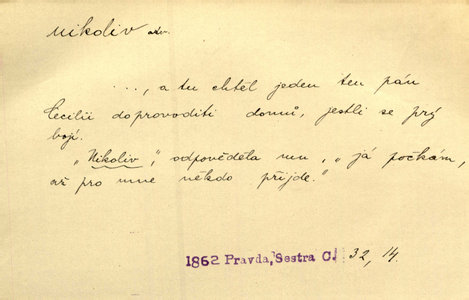 nikoliv adv.
..., a tu chtěl jeden ten pán
Cecilii doprovoditi domů, jestli se prý
bojí.
„Nikoliv”, odpověděla mu, „já počkám,
až pro mne někdo přijde.”
1862 Pravda, Sestra C. 32, 14.